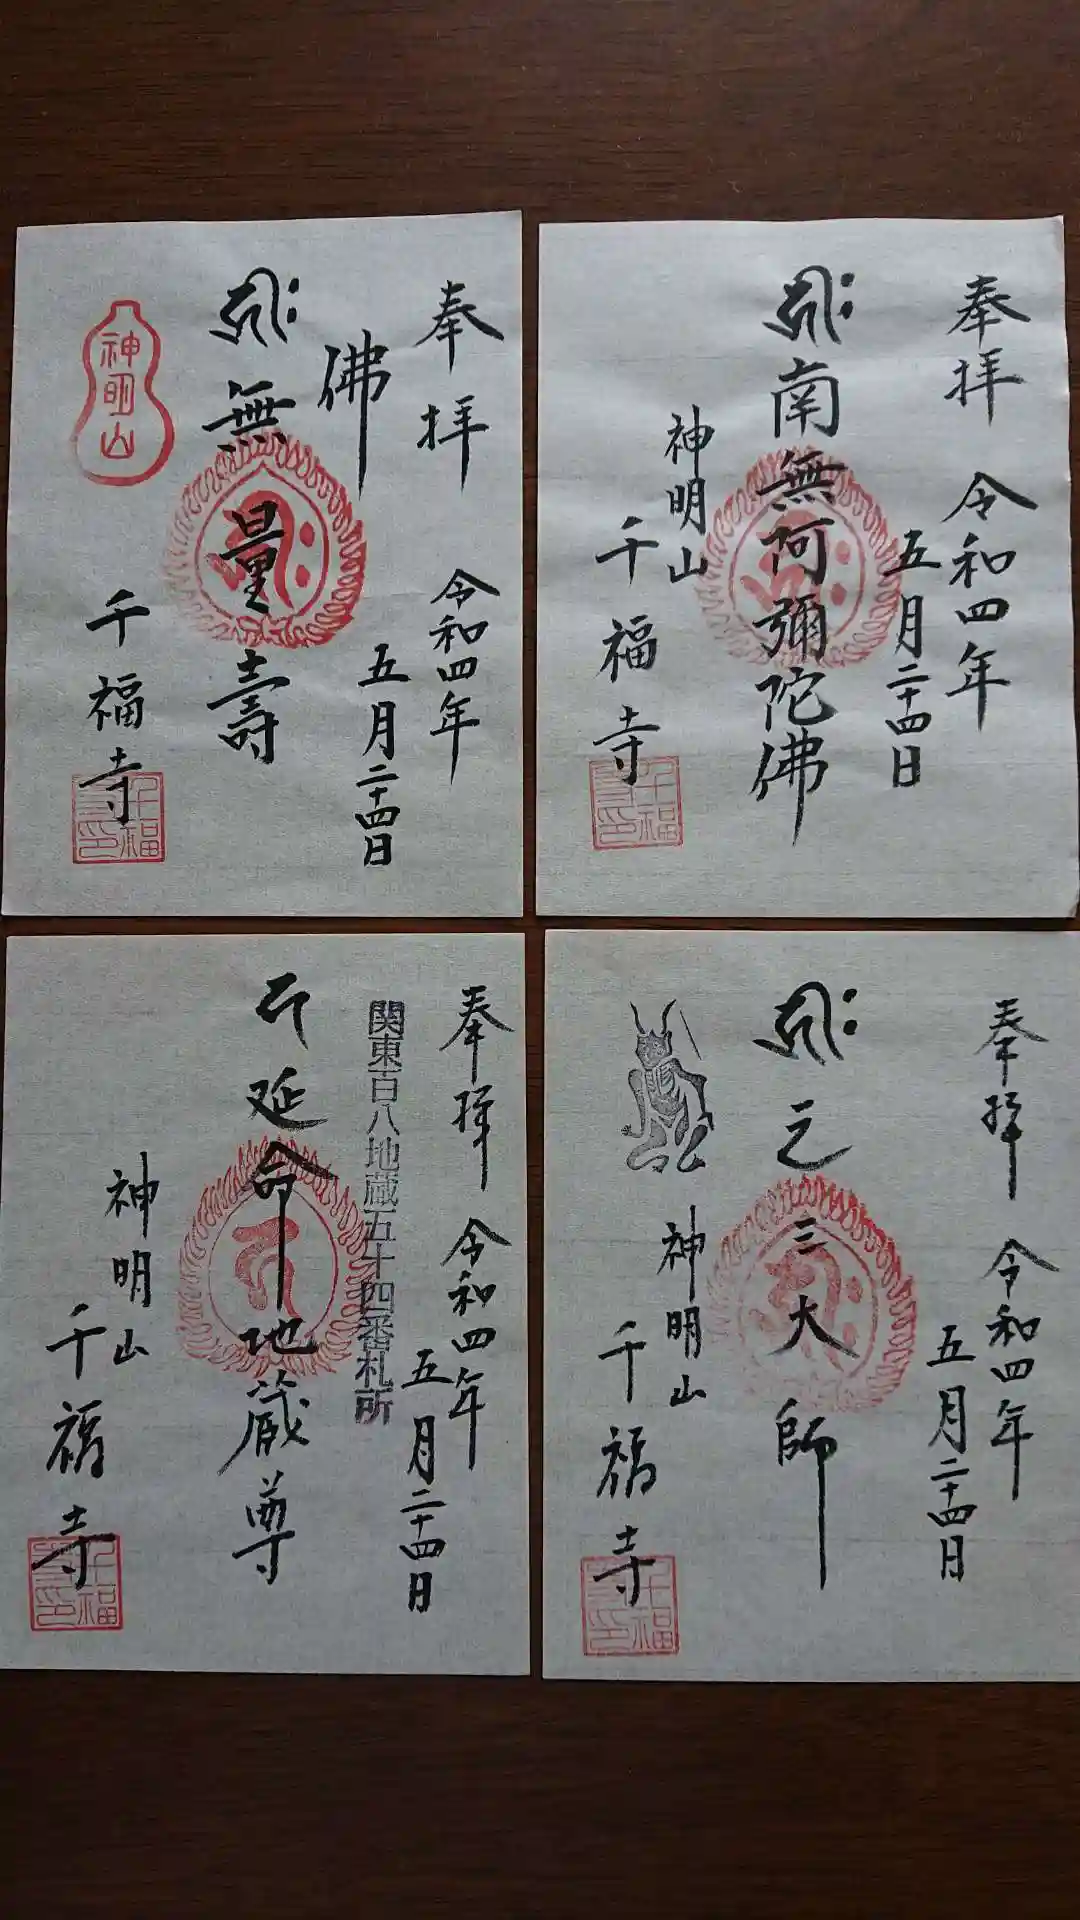 奉拝
令和四年
五月二十四日
佛
無量壽
神明山
千福寺
千福
印
奉拝
令和四年
五月二十四日
南無阿彌陀佛
神明山
千福寺
千福
印
奉拝
令和四年
五月二十四日
関東百八地蔵五十四番札所
延命地蔵尊
神明山
千福寺
千福
印
奉拝
令和四年
五月二十四日
元三大師
神明山
千福寺
千福
印